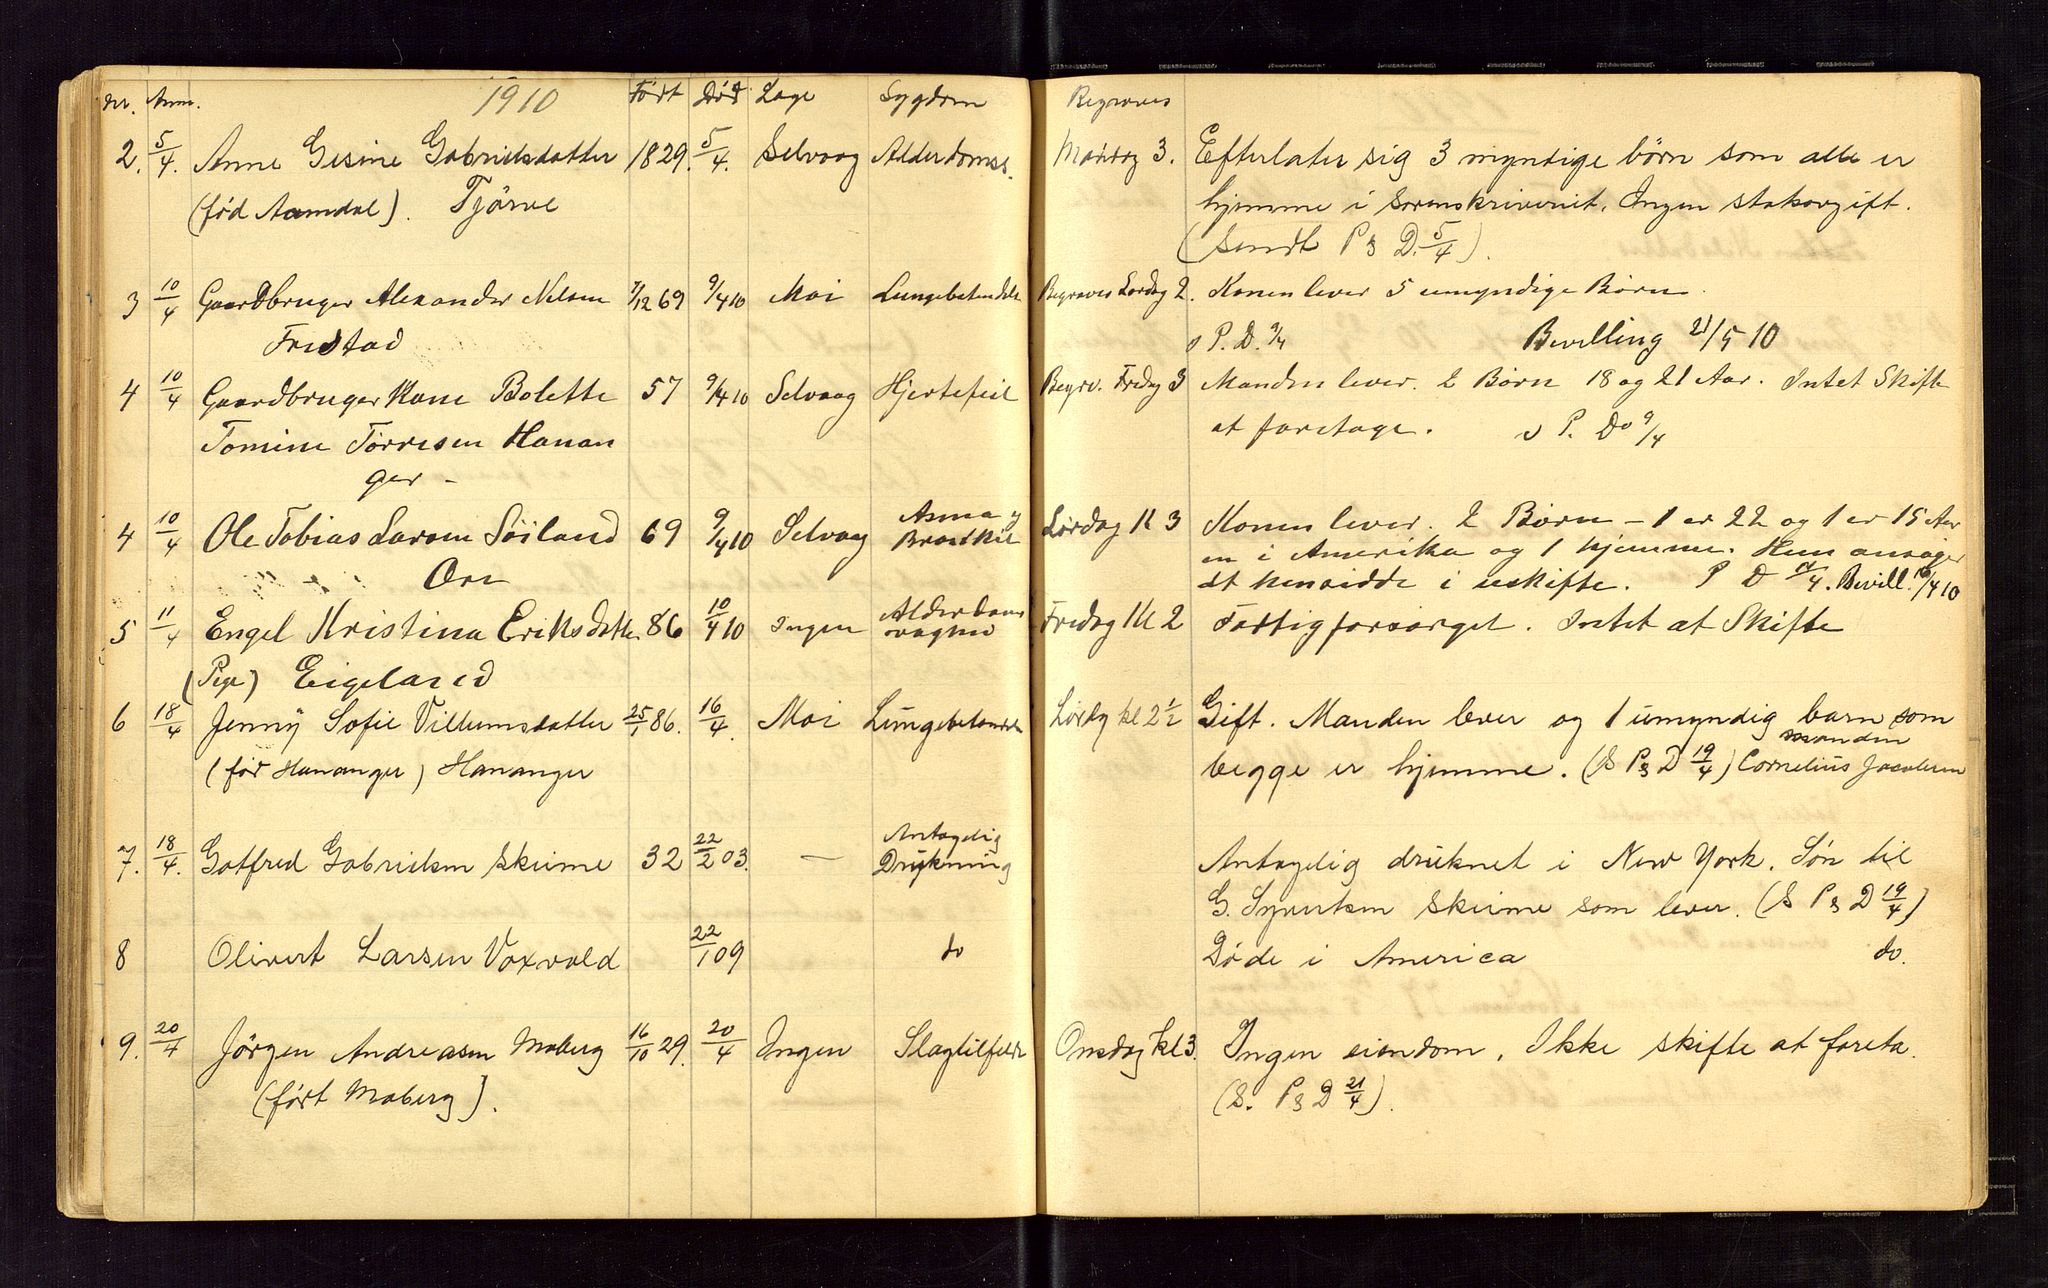 nr. Anm. 1910 Født Død Læge Sygdom
2. 5/4. Anne Gesine Gabrielsdatter 1829. 5/4. Selvaag Alderdomss.
(fød Aamdal). Tjörve
3 10/4 Gaardbruger Alexander Nelsen 7/12 69 9/4 10 Moi Lungebetendelse
Fristad
4 10/4 Gaardbruger Kone Bolette 57 9/4 10 Selvaag Hjertefeil
Tomine Tørresen Hanan
ger -
4 10/4 Ole Tobias Larsen Söiland 69 9/4 10 Selvaag Asma og
Ore
5 11/4 Engel Kristina Eriksdatter 86 10/4 10 Ingen Alderdoms
(Pige) Eigeland
6 18/4 Jenny Sofie Villumsdatter 25/1 86. 16/4. Moi Lungebetændelse
(før Hananger) Hananger
7. 18/4. Gotfred Gabrielsen Skeime 32 22/2 03. — Antagelig
Drukning
8 Olivert Larsen Vaxvold 22/1 09 do
9. 20/4 Jörgen Andreasen Moberg 16/10 29. 20/4 Ingen Slagtilfelde
(født Moberg).
Begraves
Mandag 3. Efterlater sig 3 myndige børn som alle er
hjemme i Sorenskriveriet. Ingen statsavgift.
(Sendt P & D. 5/4).
Begraves Lørdag 2. Konen lever 5 umyndige Børn.
s P. D. 9/4 Bevilling 21/5 10
Begrv. Fredag 3 Manden lever. 2 Børn 18 og 21 Aar. Intet Skifte
at foretage. s P. Do 9/4
Lørdag Kl 3 Konen lever. 2 Børn - 1 er 22 og 1 er 15 Aar
en i Amerika og 1 hjemme. Hun ansøger
at hensidde i uskifte. P D 11/4. Bevill. 16/4 10
Fredag Kl 2 Fattigforsørget. Intet at Skifte
Lørdg kl 2 1/2 Gift. Manden lever og 1 umyndig barn som
manden
begge er hjemme. (S P & D 19/4) Cornelius Jacobsen
Antagelig druknet i New York. Søn til
G. Syvertsen Skeime som lever. (S P & D 19/4)
Døde i America do.
Onsdag kl 3. Ingen eiendom. Ikke skifte at foreta.
(S. P & D 21/4).